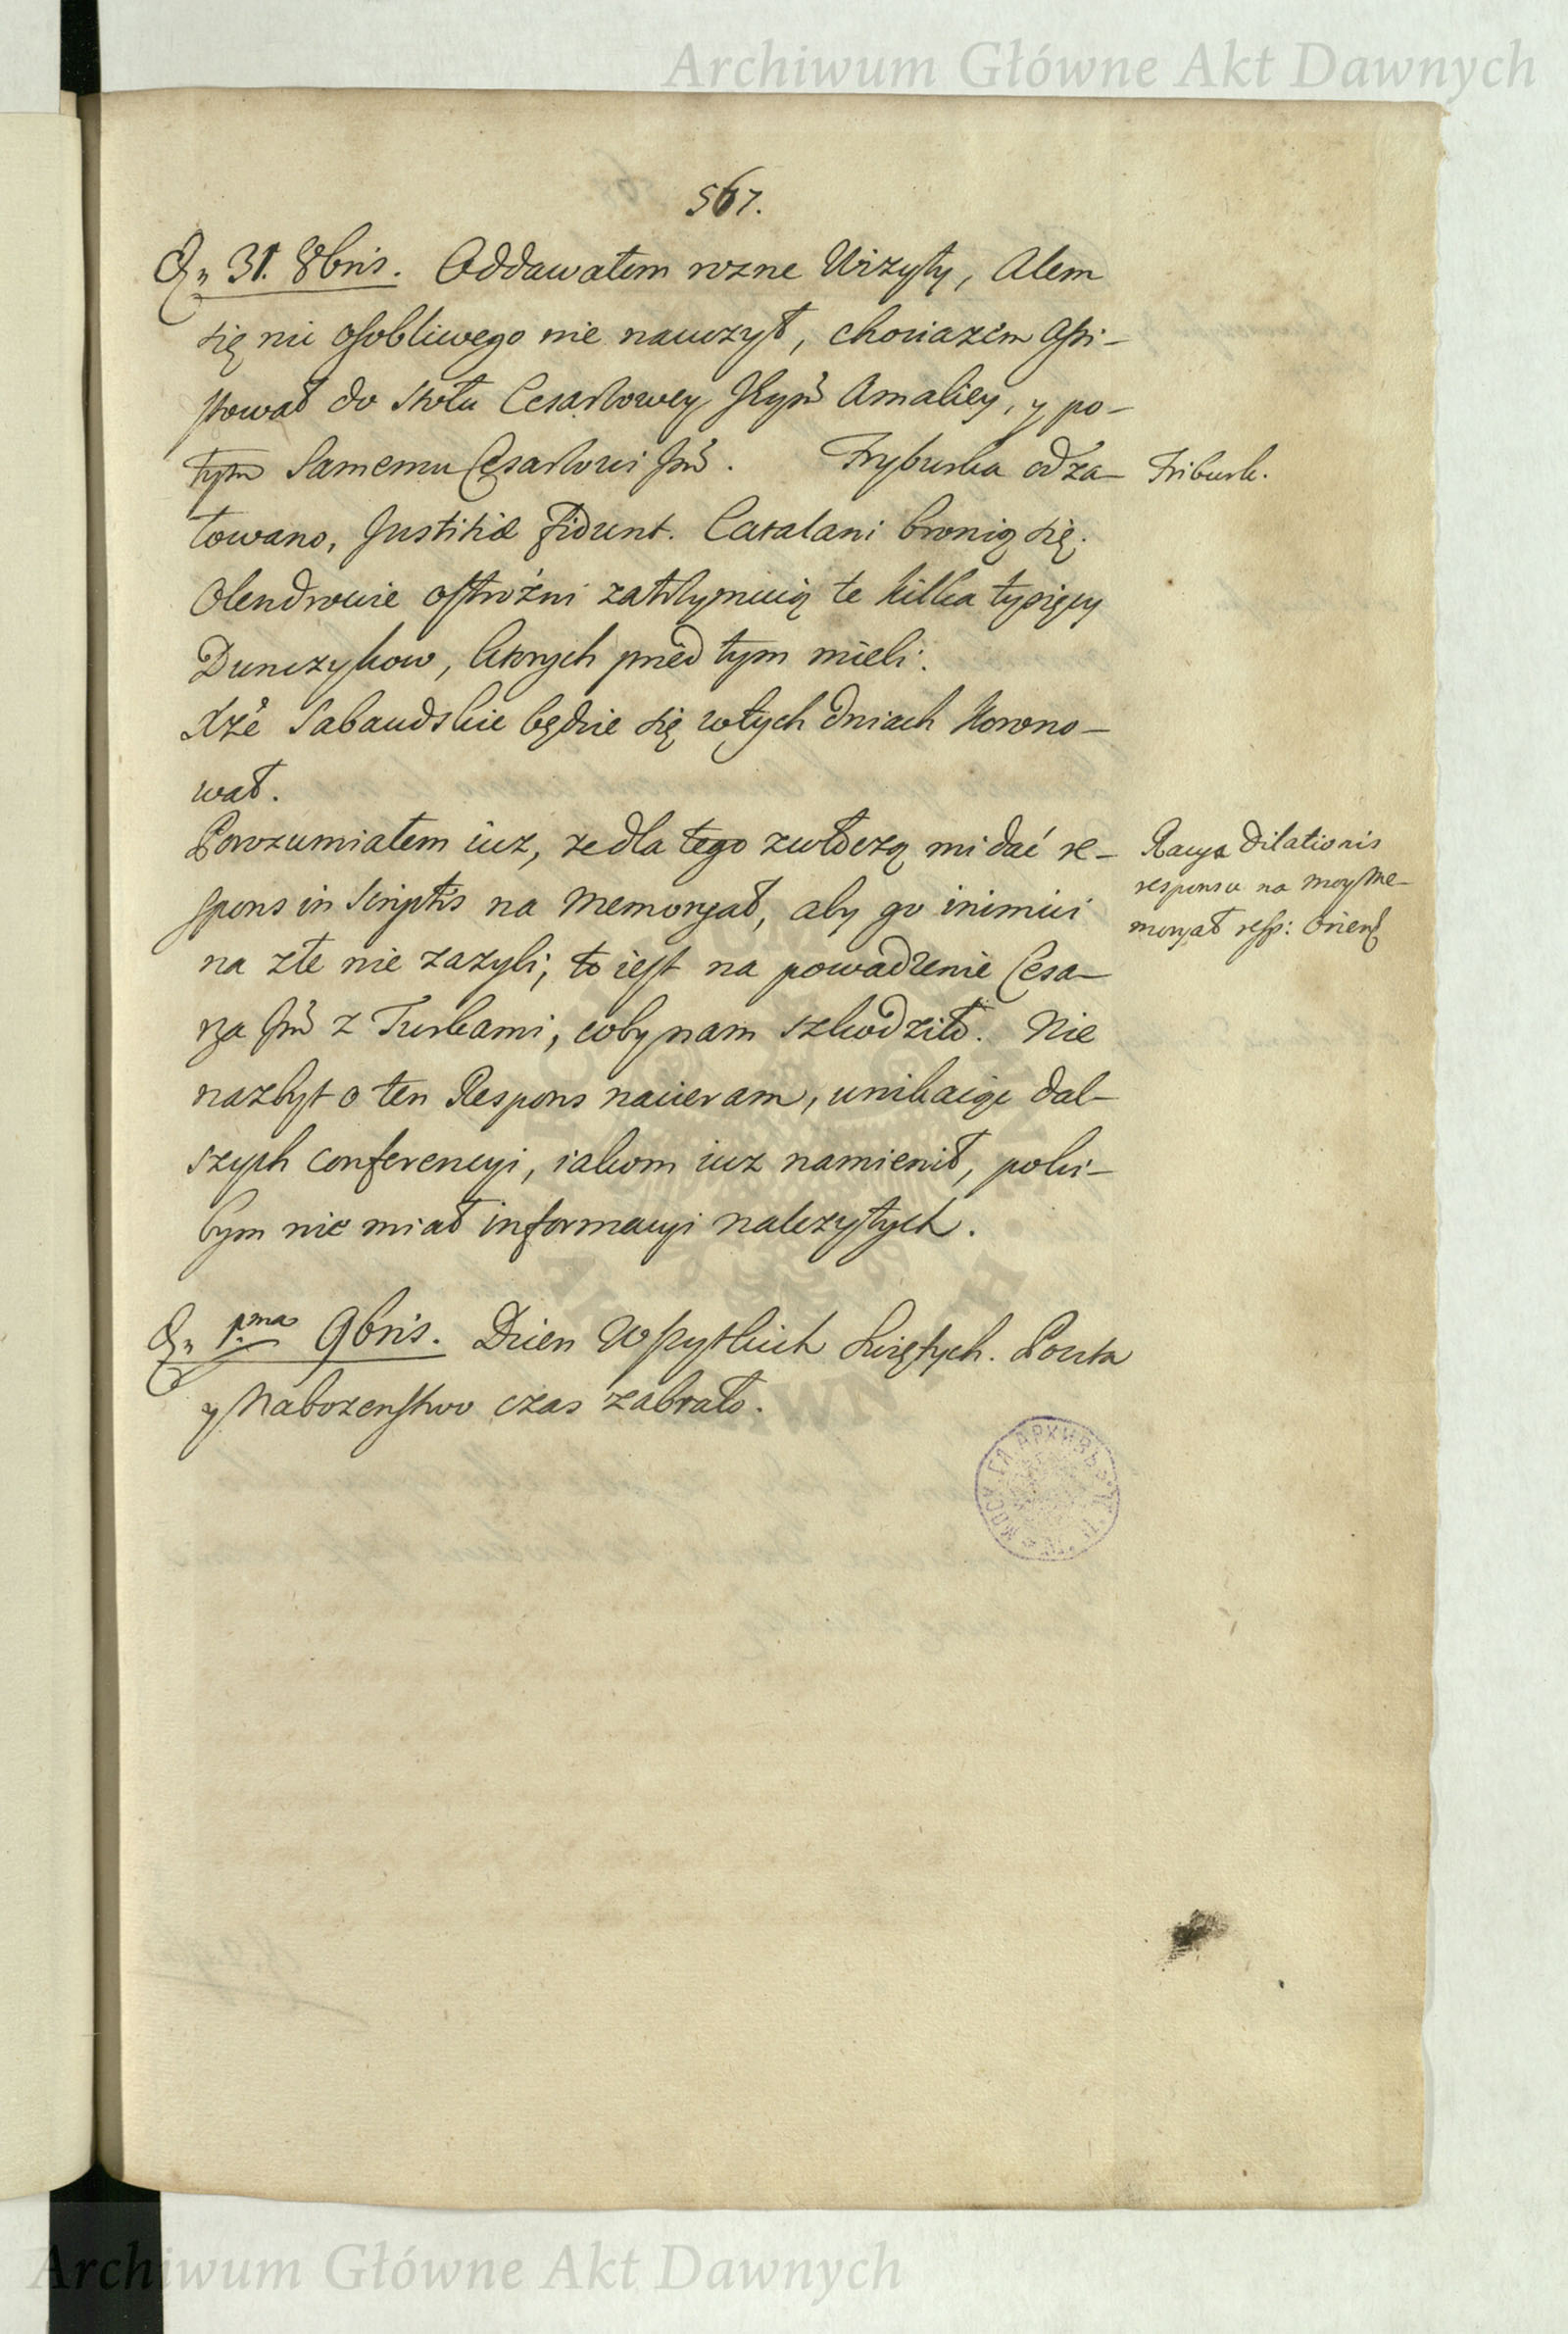 Archiwum Główne Akt Dawnych
567.
Dn 31. 8bris. Oddawałem rozne Wizyty, Alem
się nic osobliwego nie nauczył, chociazem Assi-
stował do stołu Cesarzowey Jeymć Amaliey, y po-
tym Samemu Cesarzowi Jmć. Fryburka odża-
Friburk.
łowano, Justitiæ fidunt. Catalani bronią się.
Olendrowie ostrożni zatrzymuią te kilka tysięcy
Dunczykow, ktorych przed tym mieli.
Xże Sabaudskie będzie się w tych dniach Korono-
wał.
Porozumiałem iuz, ze dla tego zwłoczą mi dać re-
spons in Scriptis na Memoryał, aby go inimici
na złe nie zazyli; to iest na powadzenie Cesa-
rza Jmć z Turkami, coby nam szkodziło. Nie
nazbyt o ten Respons nacieram, unikaiąc dal-
szych conferencyi, iakom iuz namienił, poki-
bym nie miał informacyi nalezytych.
Racya Dilationis
responsu na moy Me-
moryał resp: Orient
Dn 1.ma 9bris. Dzien Wszytkich Swiętych. Poczta
y Nabozenstwo czas zabrało.
Archiwum Główne Akt Dawnych